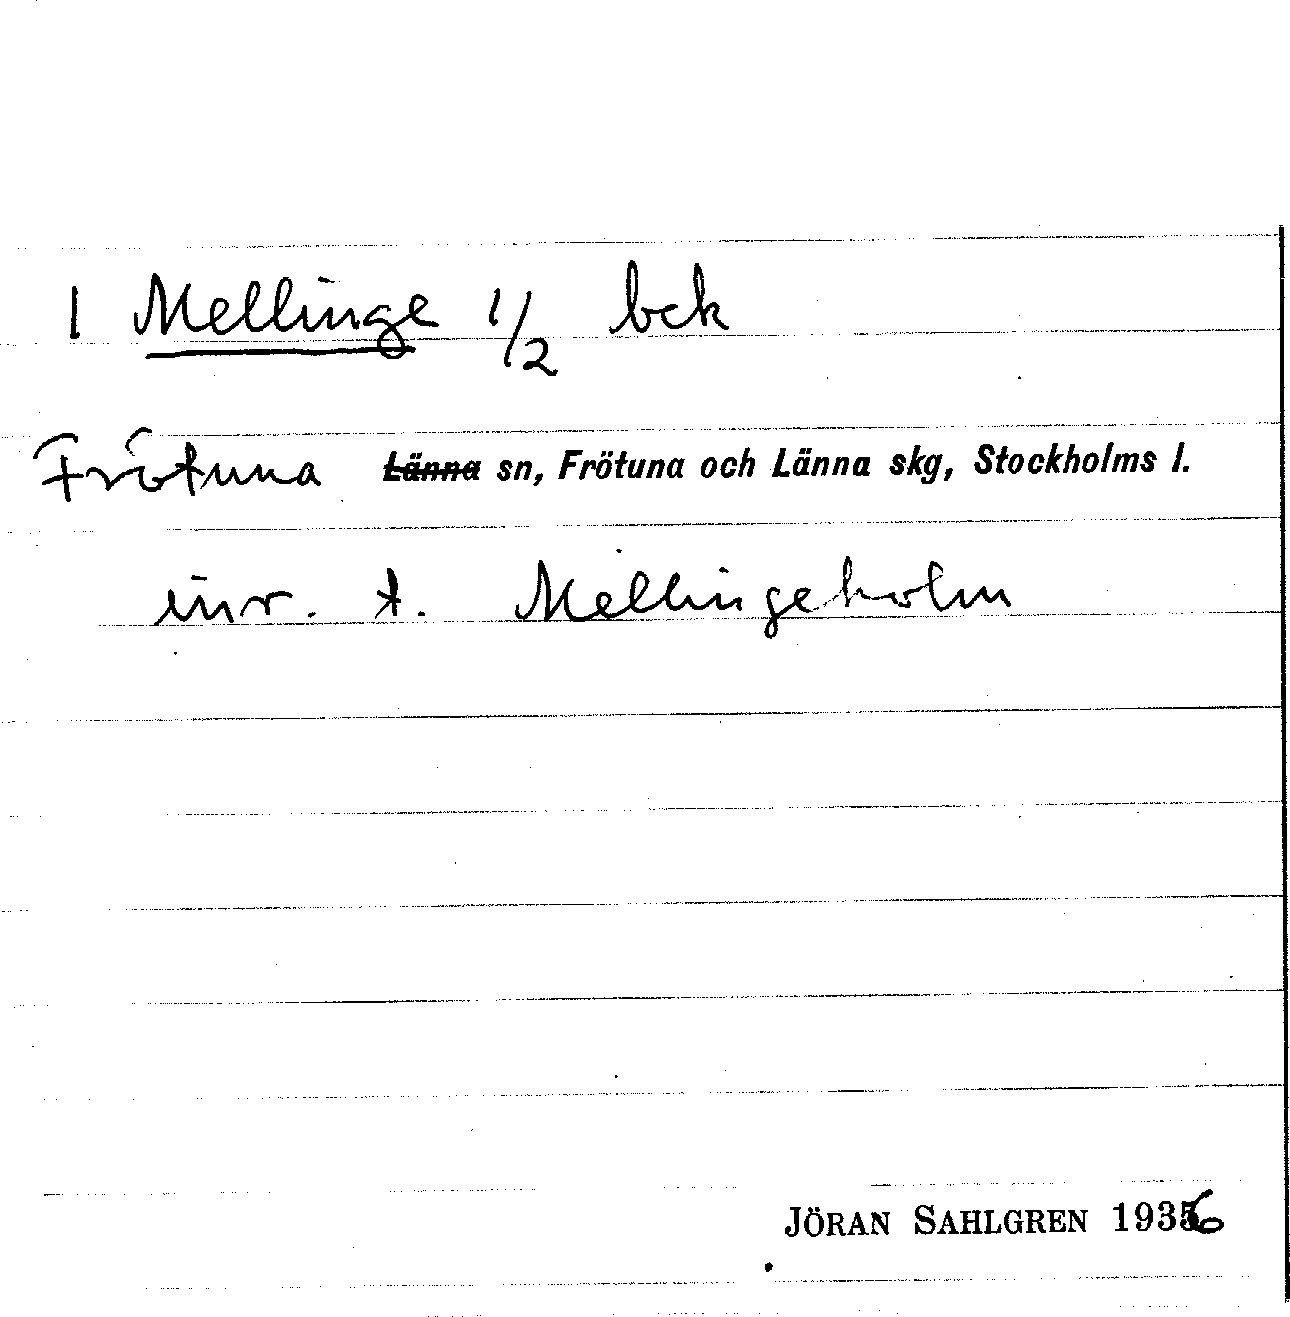 1 Mellinge 1/2 bck
Frötuna Länna sn, Frötuna och Länna skg, Stockholms l.
inr. t. Mellingeholm
JÖRAN SAHLGREN 1936